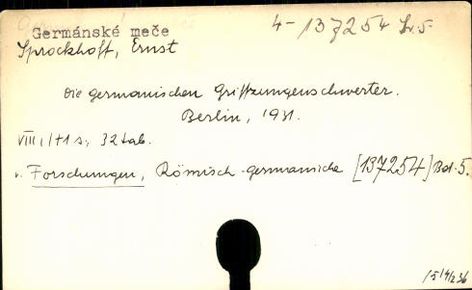 Germánské meče
4-137254 Sv.5
Sprockhoff, Ernst
Die germanischen Griffzungenschwerter.
Berlin, 1931.
VIII, s, 32 tab.
v. Forschungen, Römisch-germanische [137254] Bd. 5.